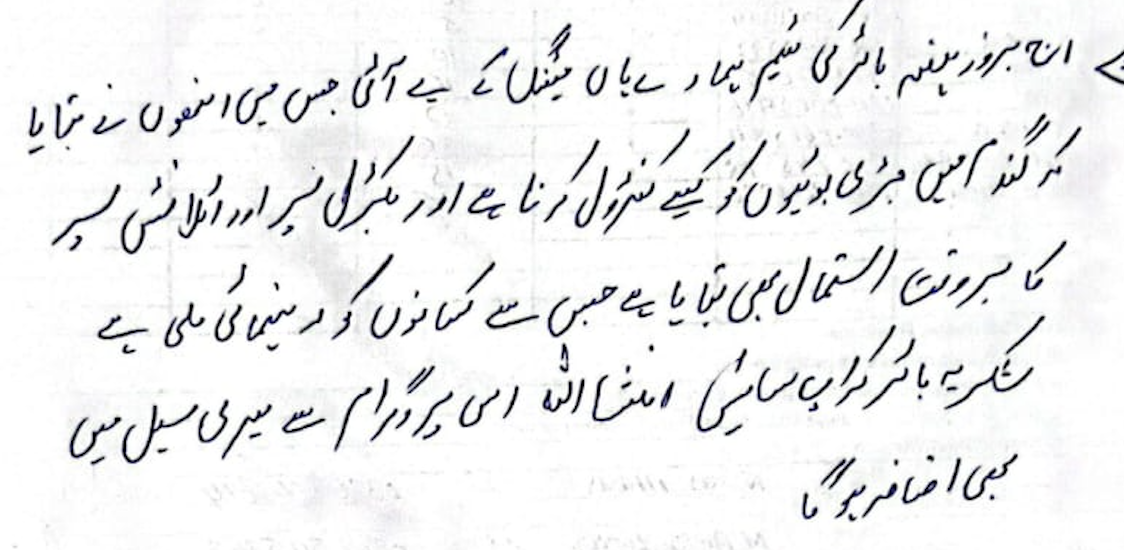 اج بروز ہفتہ بائر کی ٹیم ہمارے ہاں میٹنگ کے لیے آئی جس میں انھوں نے بتایا
کہ گندم میں جڑی بوٹیوں کو کیسے کنٹرول کرنا ہے اور بکٹرل سپر اور اٹلانٹس سپر
کا بروقت استمال بھی بتایا ہے جس سے کسانوں کو رہنمائی ملی ہے
شکریہ بائر کراپ سائنس انشا اللہ اس پروگرام سے میری سیل میں
بھی اضافہ ہوگا